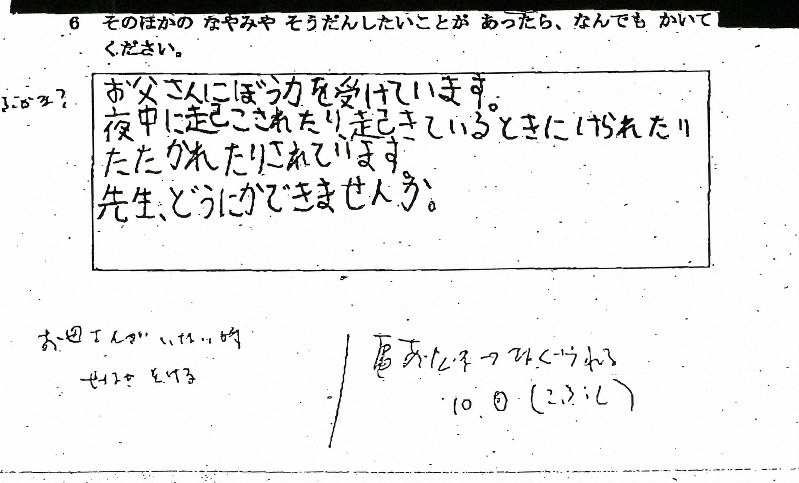 6 そのほかの なやみや そうだんしたいことが あったら、なんでも かいて
ください。
お父さんにぼう力を受けています。
夜中に起こされたり、起きているときにけられたり
たたかれたりされています。
先生、どうにかできませんか。
お母さんがいない時
あたま→なぐられる
10回(こぶし)